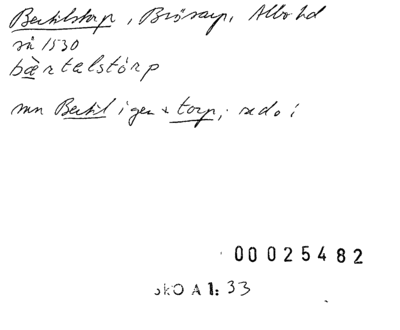 Bertilstorp, Brösarp, Albo hd
så 1530
bærtelstórp
mn Bertil i gen + torp; se do i
00025482
SkO A 1: 33